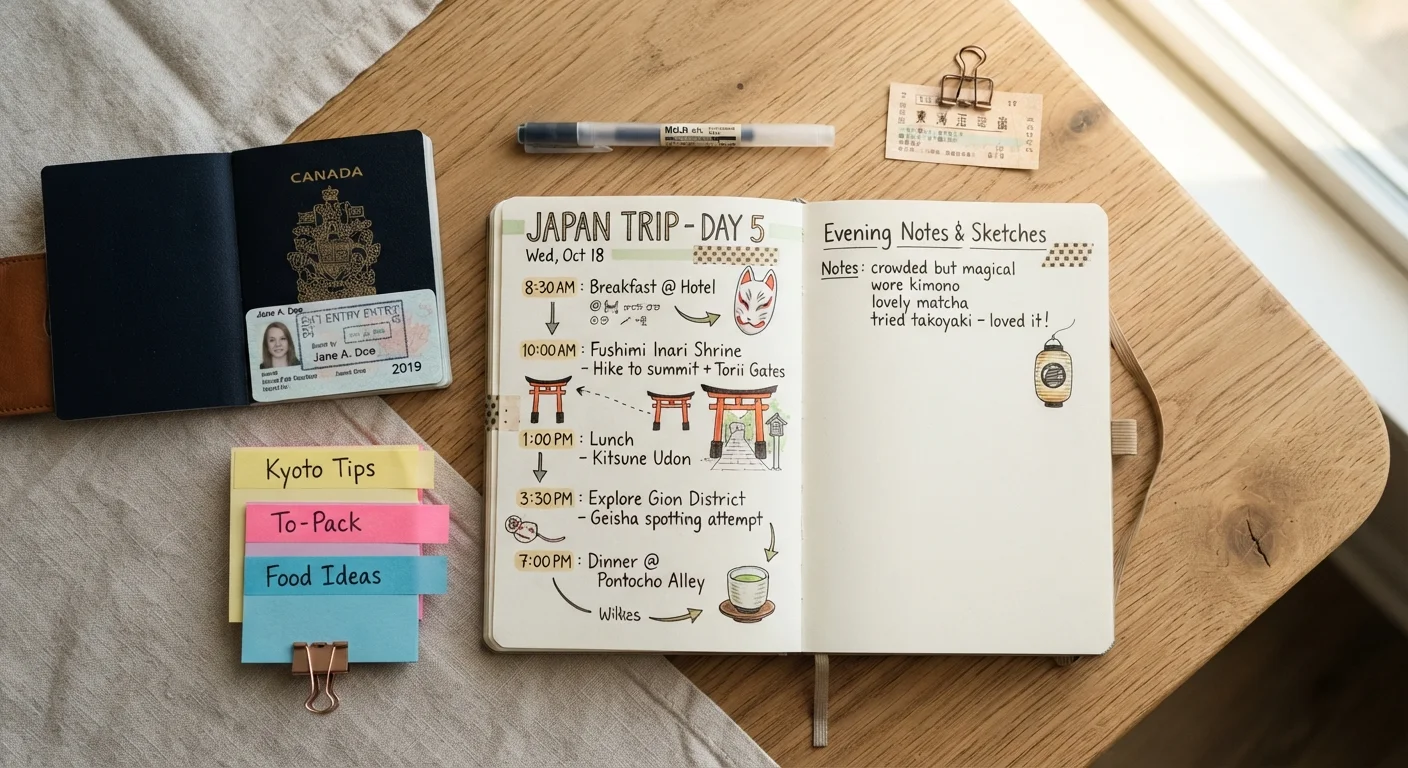 CANADA
Jane A. Doe
ENTRY
Jane A. Doe
2019
Kyoto Tips
To-Pack
Food Ideas
JAPAN TRIP - DAY 5
Wed, Oct 18
8:30 AM : Breakfast @ Hotel
10:00 AM : Fushimi Inari Shrine
- Hike to summit + Torii Gates
1:00 PM : Lunch
- Kitsune Udon
3:30 PM : Explore Gion District
- Geisha spotting attempt
7:00 PM : Dinner @
Pontocho Alley
Evening Notes & Sketches
Notes: crowded but magical
wore kimono
lovely matcha
tried takoyaki – loved it!